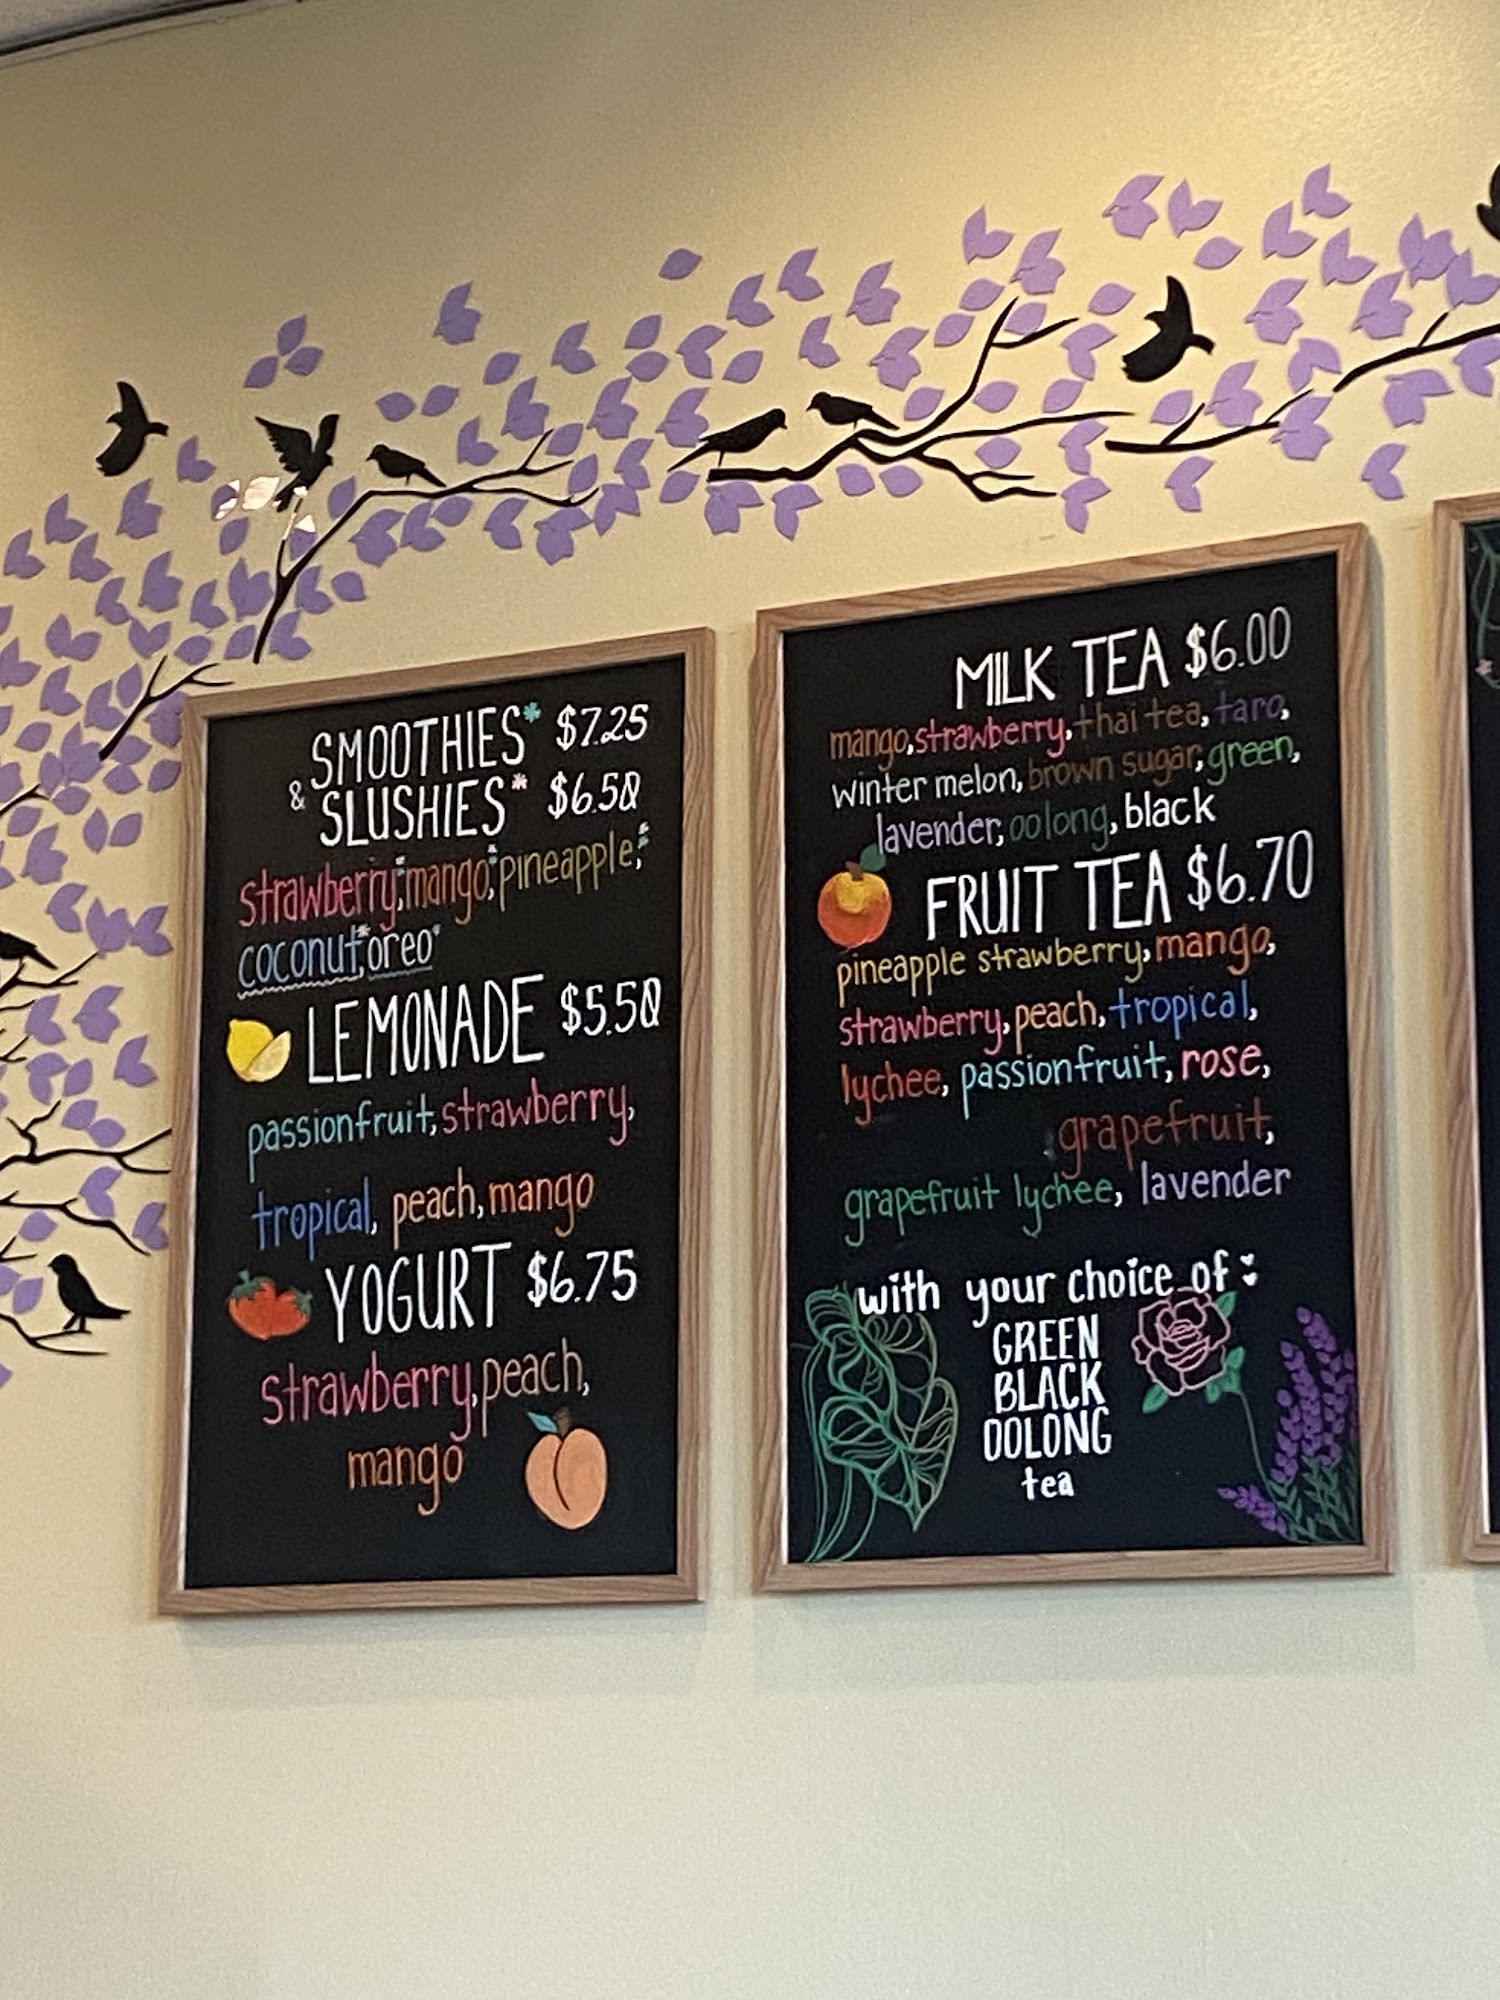 SMOOTHIES* $7.25
& SLUSHIES* $6.50
strawberry,* mango,* pineapple,*
coconut,* oreo*
LEMONADE $5.50
passionfruit, strawberry,
tropical, peach, mango
YOGURT $6.75
strawberry, peach,
mango
MILK TEA $6.00
mango, strawberry, thai tea, taro,
winter melon, brown sugar, green,
lavender, oolong, black
FRUIT TEA $6.70
pineapple strawberry, mango,
strawberry, peach, tropical,
lychee, passionfruit, rose,
grapefruit,
grapefruit lychee, lavender
with your choice of:
GREEN
BLACK
OOLONG
tea